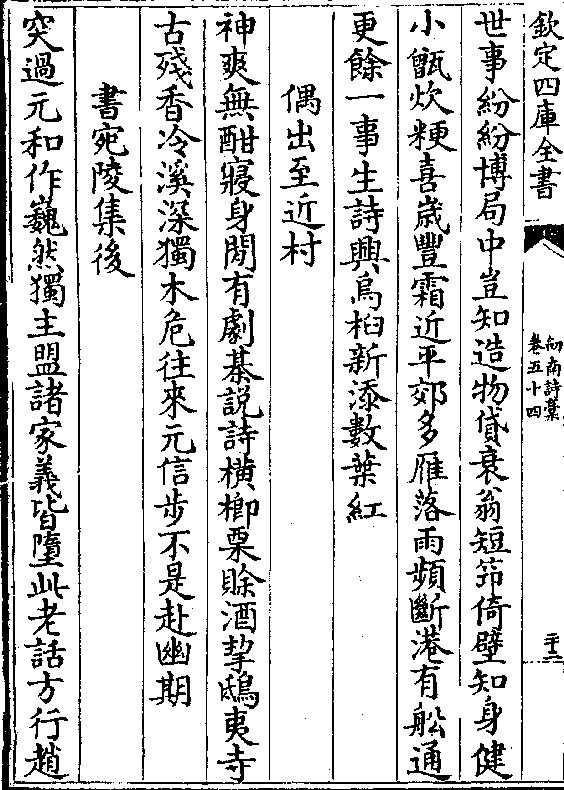 欽定四庫全書
劎南詩藳
卷五十四
二十二
世事紛紛博局中豈知造物貸衰翁短笻倚壁知身健
小甑炊粳喜嵗豐霜近平郊多雁落雨頻斷港有舩通
更餘一事生詩興烏桕新添數葉紅
偶出至近村
神爽無酣寢身閒有劇棊説詩横櫛栗賖酒挈鴟夷寺
古殘香冷溪深獨木危往來元信步不是赴幽期
書宛陵集後
突過元和作巍然獨主盟諸家義皆墮此老話方行趙